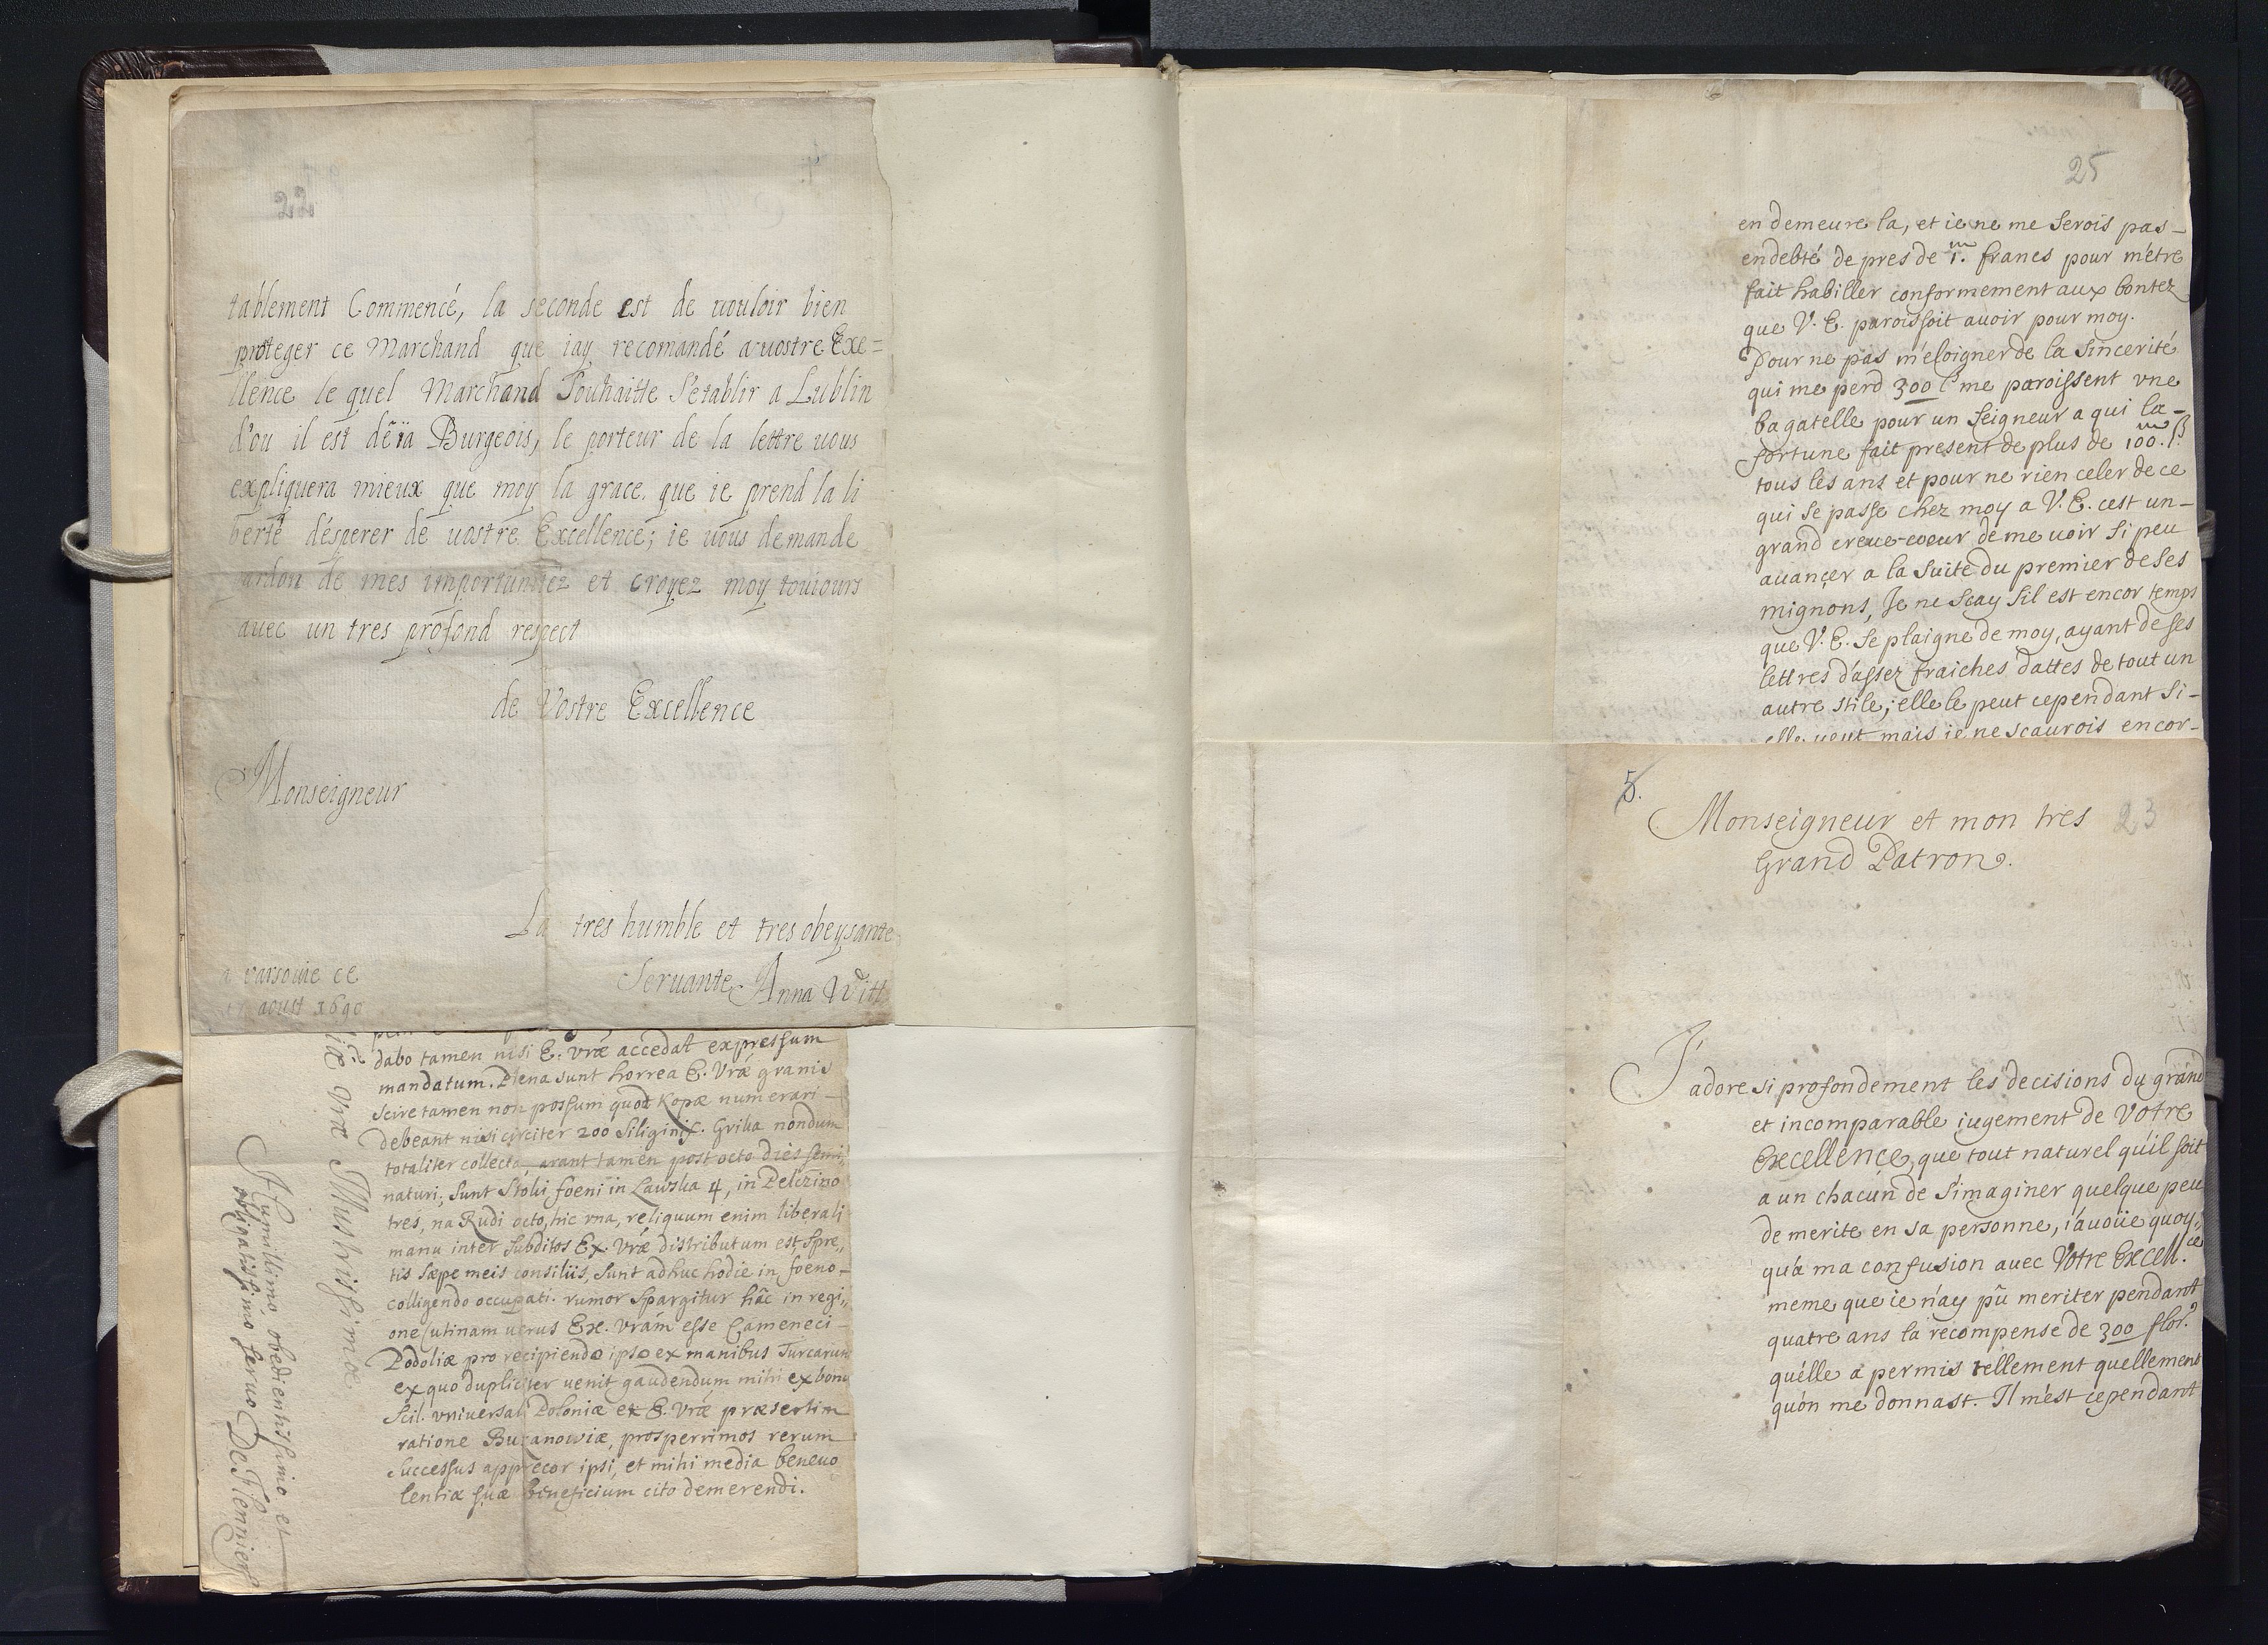 22
tablement Commencé, la seconde est de vouloir bien
proteger ce Marchand que iay recomandé a vostre Exe=
llence le quel Marchand Souhaitte S'etablir a Lublin
d'ou il est dêia Burgeois, le porteur de la lettre vous
expliquera mieux que moy la grace que ie prend la li
berté désperer de vostre Excellence; ie vous demande
ardon de mes importunitéz et croyez moy toujours
avec un tres profond respect
de Vostre Excellence
Monseigneur
La tres humble et tres obeysante
Servante Anna Witt
varsovie ce
aoust 1690
dabo tamen nisi E. Vræ accedat expressum
mandatum. Plena sunt horrea E. Vræ granis
scire tamen non possum quot Kopæ numerari –
debeant nisi circiter 200 Siliginis. Grika nondum
totaliter collecta, arant tamen post octo dies semi„
naturi; sunt Stohi foeni in Lawska 4, in Pelczino
tres, na Rudi octo, hic vna, reliquum enim liberali
manu inter Subditos Ex. Vræ distributum est, spre„
tis sæpe meis consiliis, sunt adhuc hodie in foeno –
colligendo occupati. rumor spargitur hâc in regi„
one (utinam verus Ex. Vram esse Cameneci –
Podoliæ pro recipiendo ipso ex manibus Turcarum
ex quo dupliciter venit gaudendum mihi ex bono
Scil. vniversali Poloniæ et E. Vræ præsertim
ratione Buzanowiæ, prosperrimos rerum
Successus apprecor ipsi, et mihi media benevo
lentiæ suæ beneficium cito demerendi.
Vræ Illustrissimæ
Humillimo obedientissimo et
obligatissimo servo
25
en demeure la, et ie ne me serois pas –
endebté de pres de 1.m francs pour m'etre
fait habiller conformement aux bontez
que V. E. paroissoit avoir pour moy.
Pour ne pas m'eloigner de la sincerité
qui me perd 300 me paroissent vne
bagatelle pour un Seigneur a qui la –
fortune fait present de plus de 100.m
tous les ans et pour ne rien celer de ce
qui se passe chez moy a V. E. cest un –
grand creve-coeur de me voir si peu
avançer a la suite du premier de ses
mignons, Je ne scay sil est encor temps
que V. E. se plaigne de moy, ayant de ses
lettres d'assez fraiches dattes de tout un
autre stile; elle le peut cependant si –
elle veut mais ie ne scaurois encor –
5.
23
Monseigneur et mon tres
Grand Patron.
J'adore si profondement les decisions du grand
et incomparable iugement de Votre
Excellence, que tout naturel qu'il soit
a un chacun de s'imaginer quelque peu
de merite en sa personne, i'avoüe quoy„
qu'a ma confusion avec Votre Excell.ce
meme que ie n'ay pû meriter pendant
quatre ans la recompense de 300 flor.
qu'elle a permis tellement quellement
qu'on me donnast. Il m'est cependant